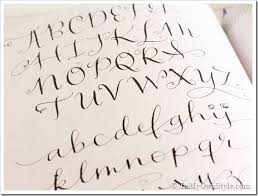 ABCDEFG
HIJKLM
NOPQRS
TUVWXYZ
abcdefghij
klmnopqr
InMyOwnStyle.com